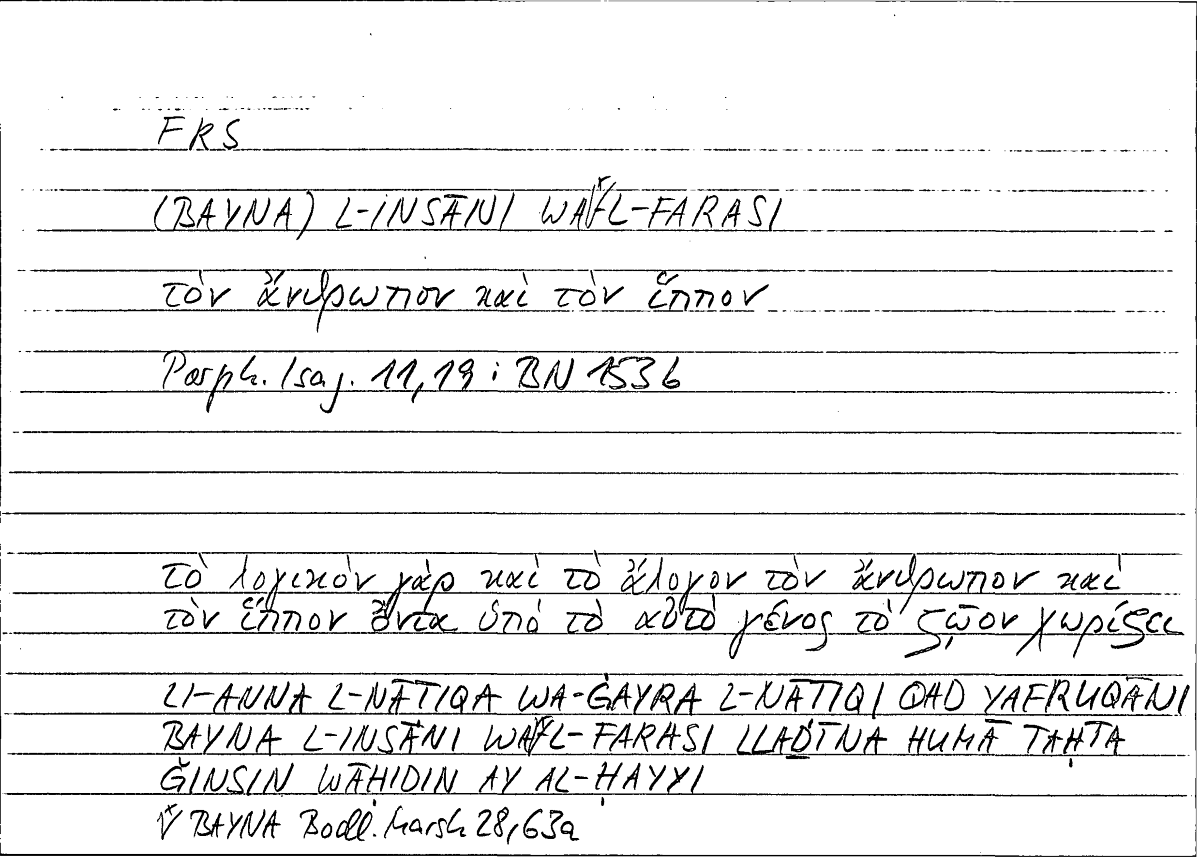 FRS
(BAYNA) L-INSĀNI WA ⌜*L-FARASI
τὸν ἄνθρωπον καὶ τὸν ἵππον
Porph. Isag. 11,19 : BN 153b
τὸ λογικὸν γὰρ καὶ τὸ ἄλογον τὸν ἄνθρωπον καὶ
τὸν ἵππον ὄντα ὑπὸ τὸ αὐτὸ γένος τὸ ζῷον χωρίζει
LI-ANNA L-NĀṬIQA WA-ĠAYRA L-NĀṬIQI QAD YAFRUQĀNI
BAYNA L-INSĀNI WA ⌜*L-FARASI LLAḎĪNA HUMĀ TAḤTA
ǦINSIN WĀḤIDIN AY AL-ḤAYYI
⌜* BAYNA Bodl. Marsh 28,63a